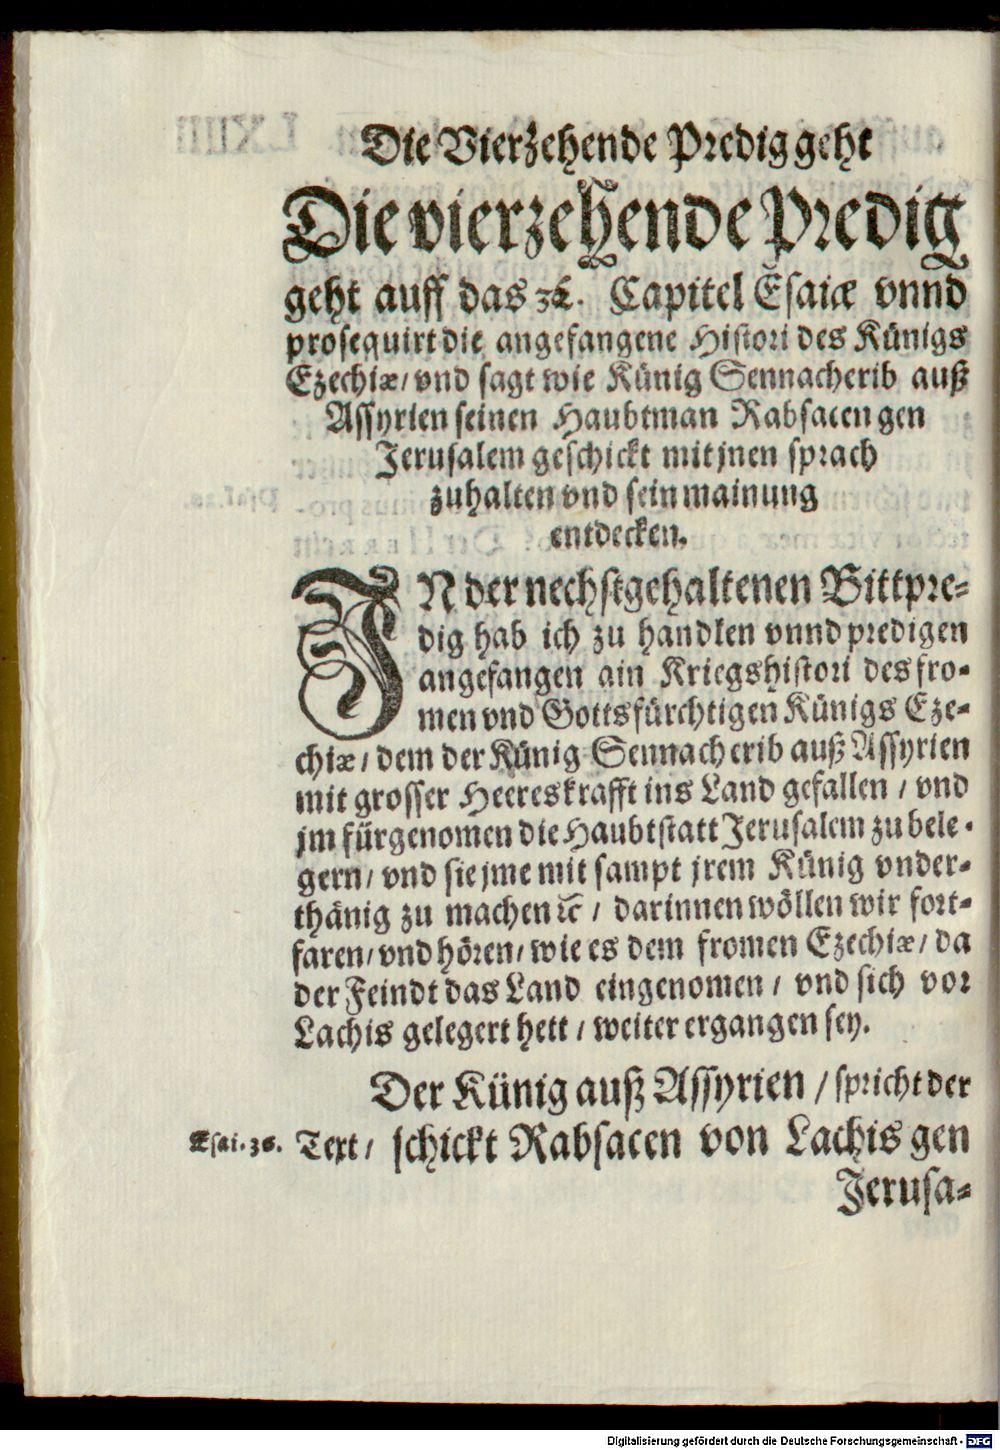 Die Vierzehende Predig geht
Die vierzehende Predig
geht auff das 36. Capitel Esaiæ vnnd
prosequirt die angefangene Histori des Künigs
Ezechiæ/ vnd sagt wie Künig Sennacherib auß
Assyrien seinen Haubtman Rabsacen gen
Jerusalem geschickt mit jnen sprach
zuhalten vnd sein mainung
entdecken.
IN der nechstgehaltenen Bittpre-
dig hab ich zu handlen vnnd predigen
angefangen ain Kriegshistori des fro-
men vnd Gottsfürchtigen Künigs Eze-
chiæ/ dem der Künig Sennacherib auß Assyrien
mit grosser Heereskrafft ins Land gefallen / vnd
jm fürgenomen die Haubtstatt Jerusalem zu bele-
gern/ vnd sie jme mit sampt jrem Künig vnder-
thänig zu machen ꝛc̄ / darinnen wöllen wir fort-
faren/ vnd hören/ wie es dem fromen Ezechiæ/ da
der Feindt das Land eingenomen / vnd sich vor
Lachis gelegert hett / weiter ergangen sey.
Der Künig auß Assyrien / spricht der
Esai. 36. Text / schickt Rabsacen von Lachis gen
Jerusa-
Digitalisierung gefördert durch die Deutsche Forschungsgemeinschaft - DFG